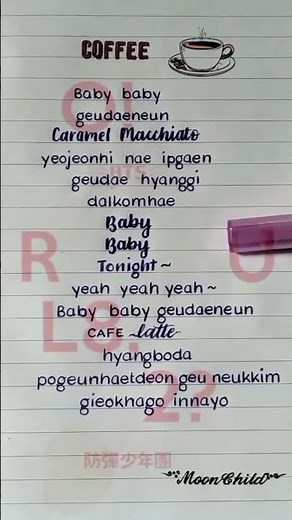 COFFEE
Baby baby
geudaeneun
Caramel Macchiato
yeojeonhi nae ipgaen
geudae hyanggi
dalkomhae
Baby
Baby
Tonight~
yeah yeah yeah~
Baby baby geudaeneun
CAFE latte
hyangboda
pogeunhaetdeon geu neukkim
gieokhago innayo
O!
BTS
R U
L8,
2?
防彈少年團
MoonChild